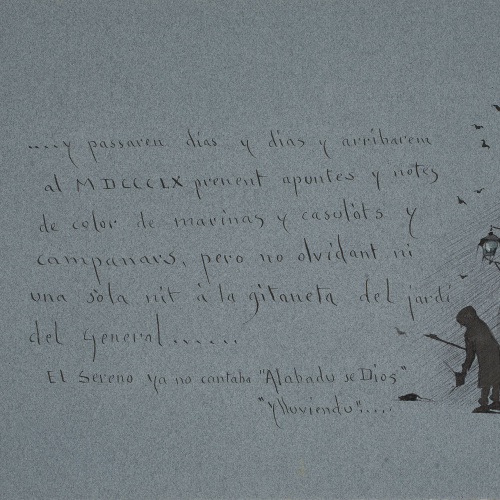 ....y passaren días y días y arribarem
al MDCCCLX prenent apuntes y notes
de color de marinas y casulots y
campanars, pero no olvidant ni
una sola nit á la gitaneta del jardí
del General......
El Sereno ya no cantaba "Alabadu se Dios"
"Ylluviendu"....